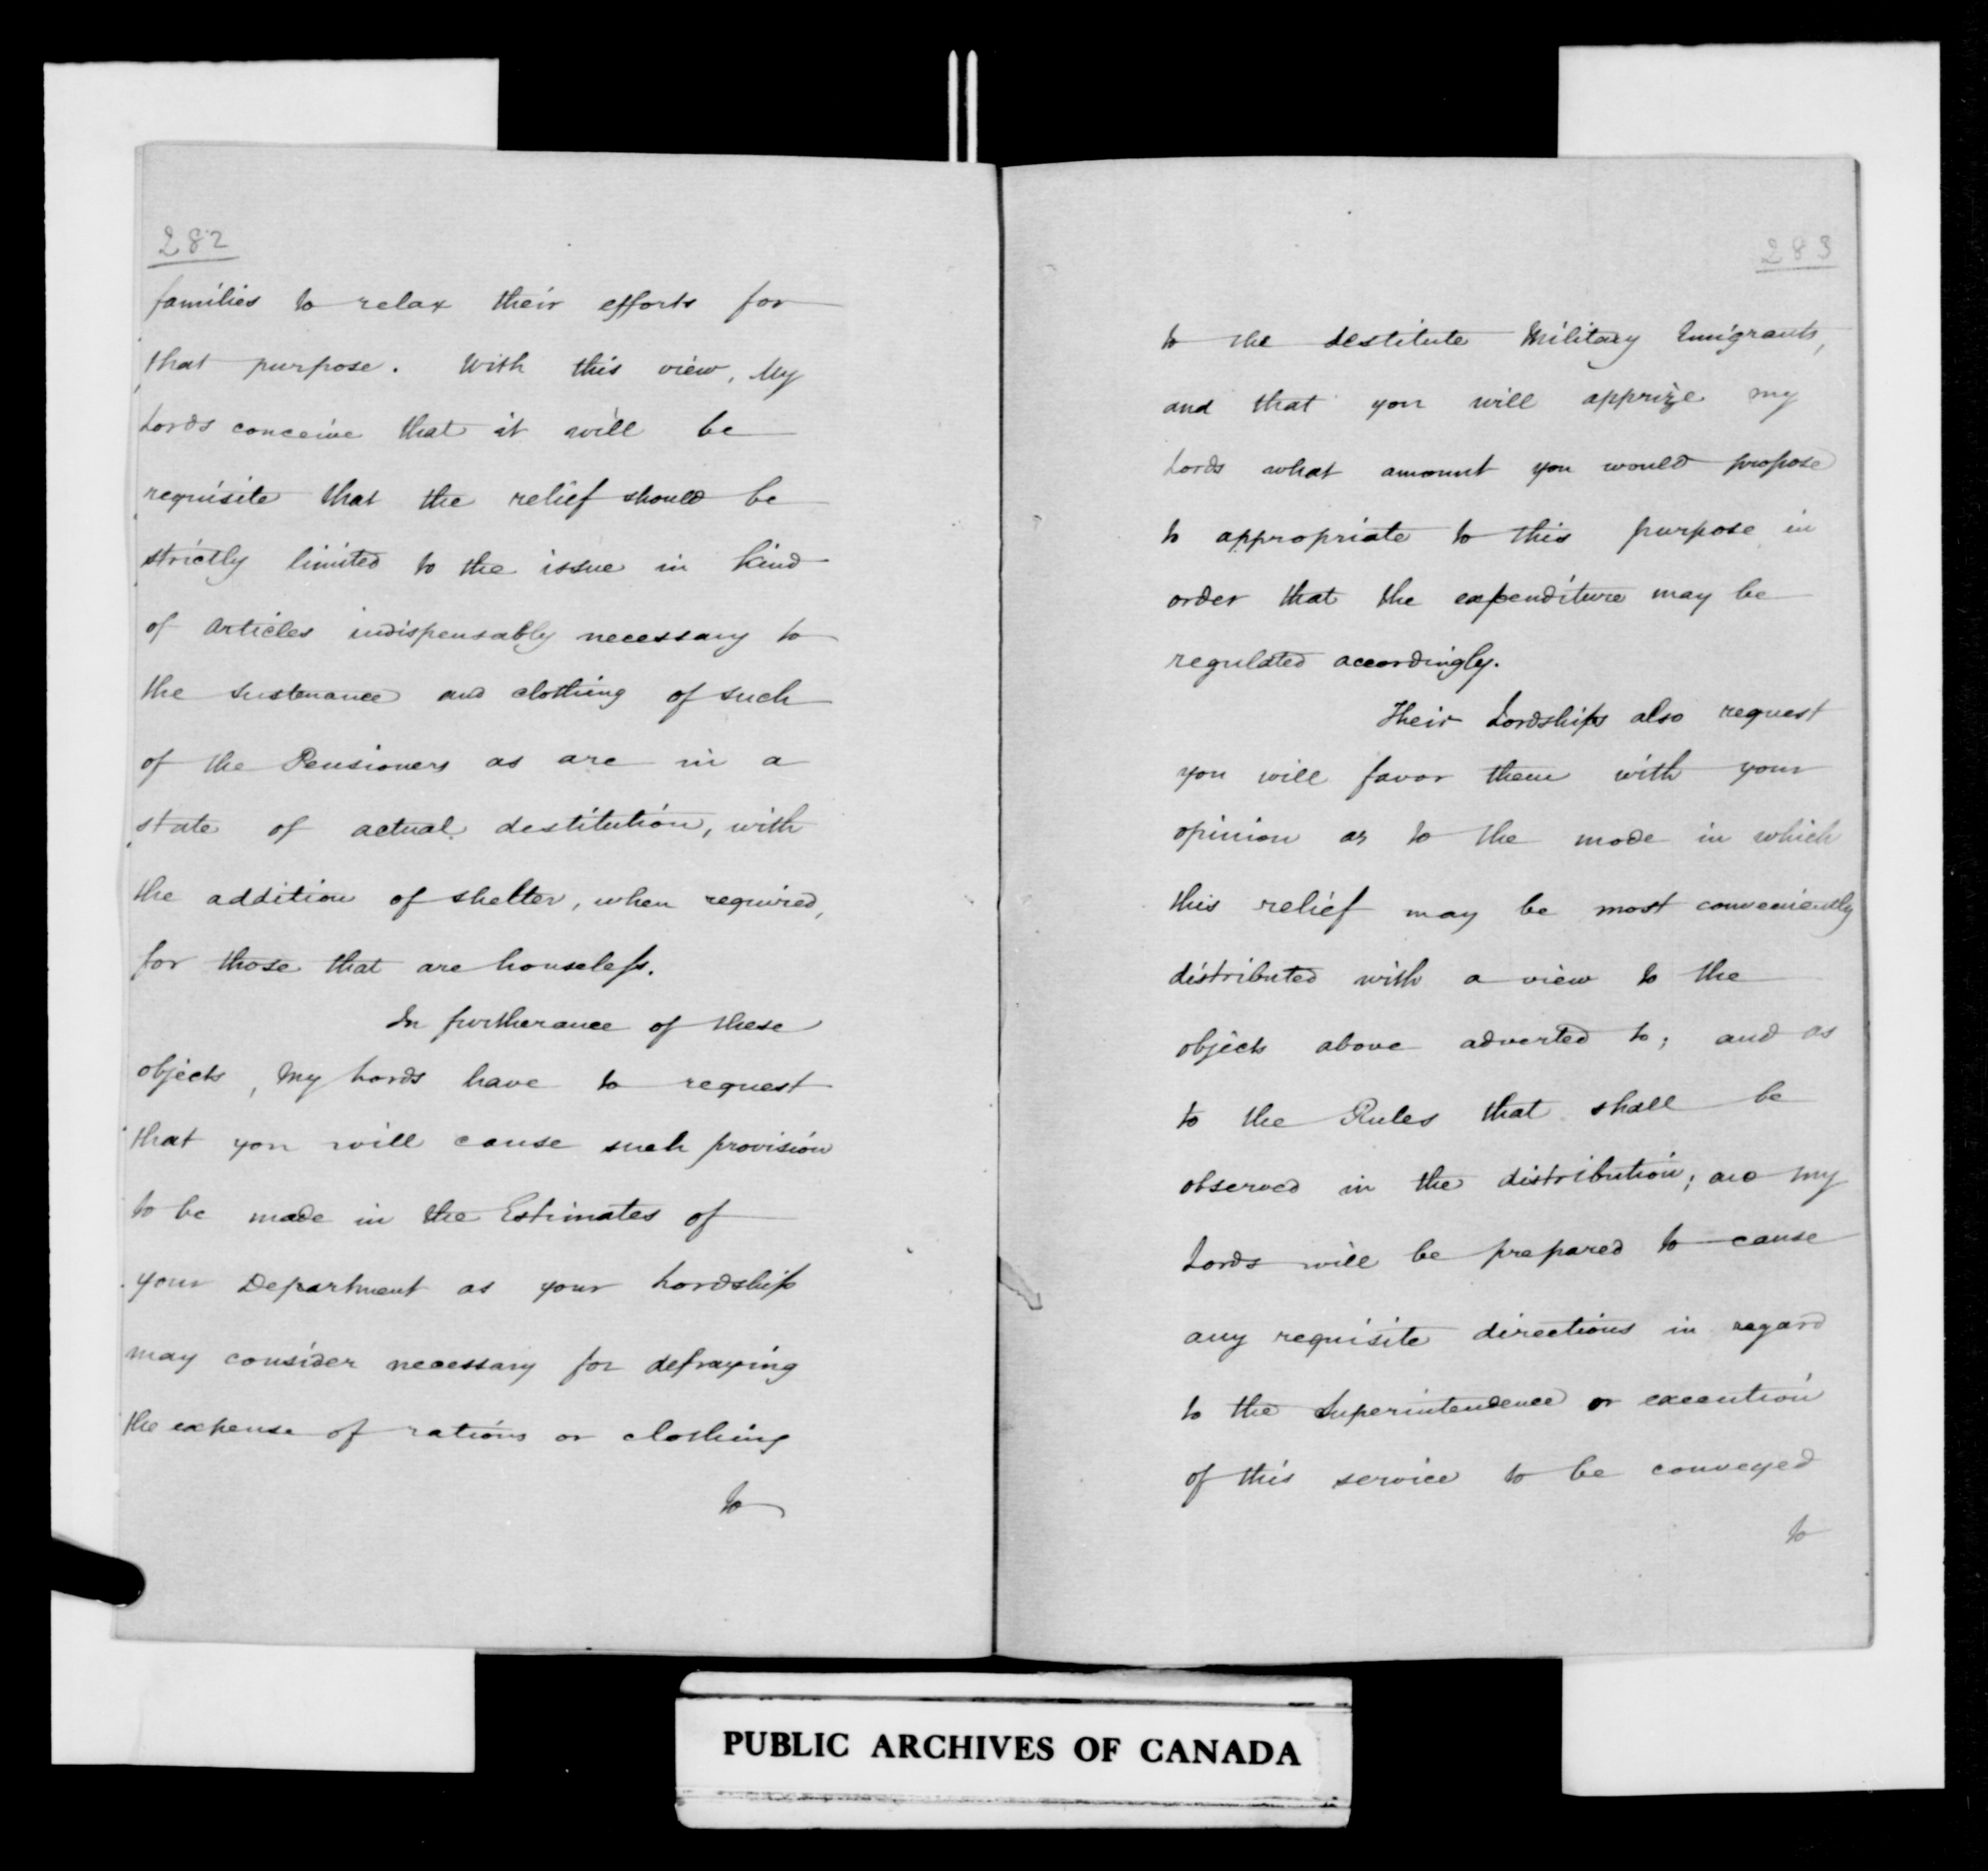 282
families to relax their efforts for
that purpose. With this view, My
Lords conceive that it will be
requisite that the relief should be
strictly limited to the issue in kind
of articles indispensably necessary to
the sustenance and clothing of such
of the Pensioners as are in a
state of actual destitution, with
the addition of shelter, when required,
for those that are houseless.
In furtherance of these
objects, My Lords have to request
that you will cause such provision
to be made in the Estimates of
your Department as your Lordship
may consider necessary for defraying
the expense of rations or clothing
to
283
to the destitute Military Emigrants,
and that you will apprize my
Lords what amount you would propose
to appropriate to this purpose in
order that the expenditure may be
regulated accordingly.
Their Lordships also request
you will favor them with your
opinion as to the mode in which
this relief may be most conveniently
distributed with a view to the
objects above adverted to; and as
to the Rules that shall be
observed in the distribution; and my
Lords will be prepared to cause
any requisite directions in regard
to the Superintendence or execution
of this service to be conveyed
to
PUBLIC ARCHIVES OF CANADA